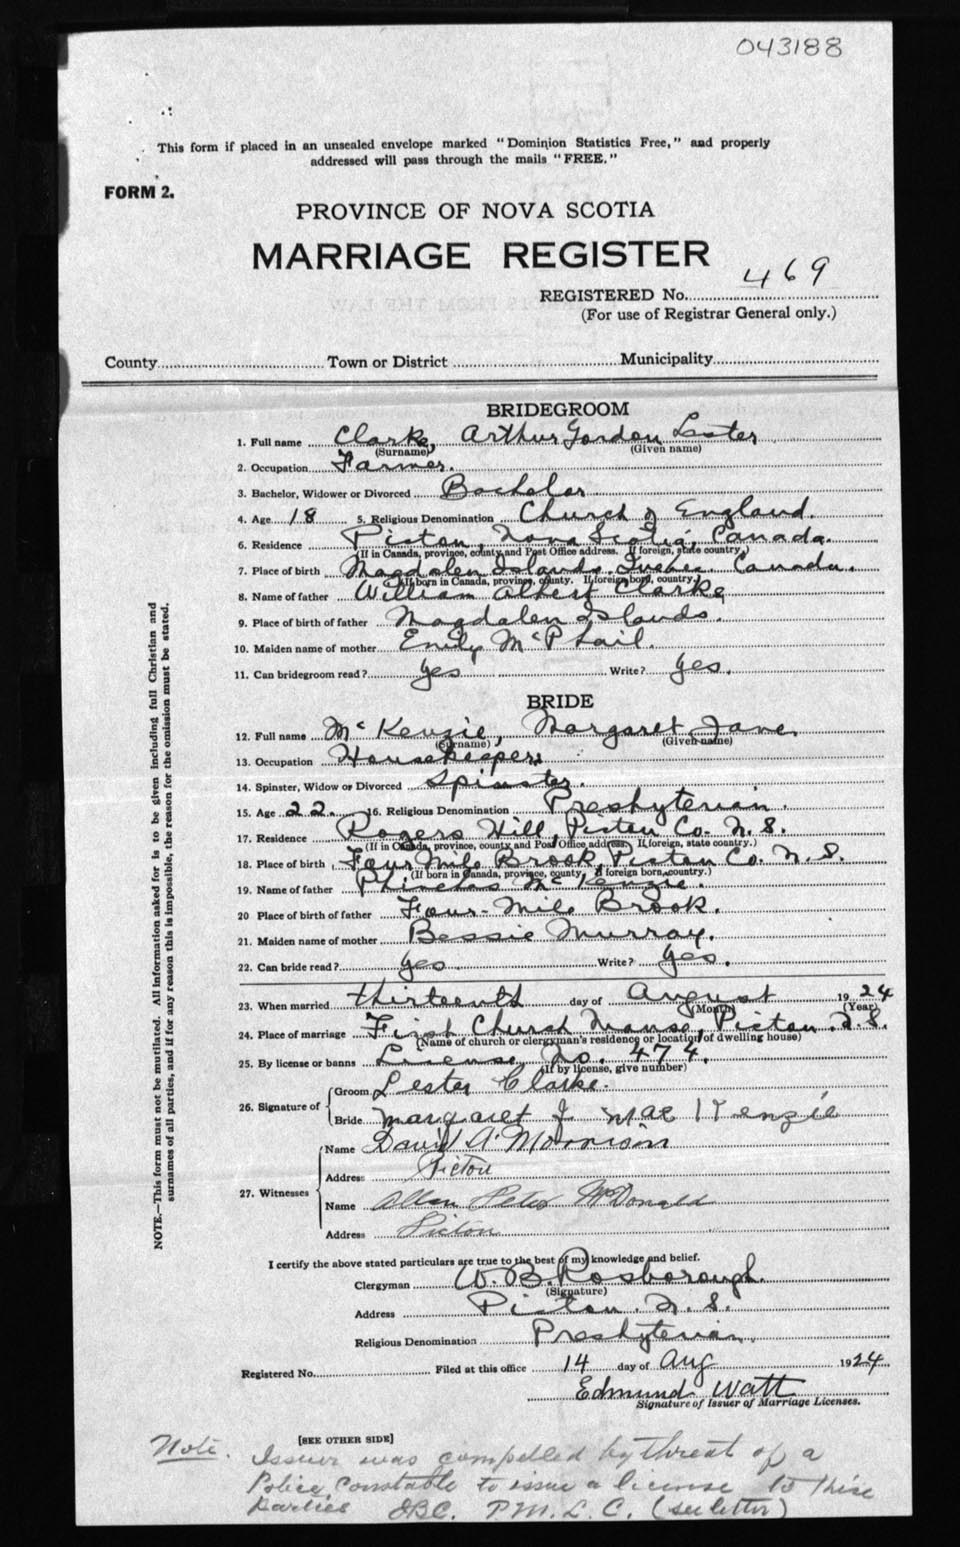 043188
This form if placed in an unsealed envelope marked "Dominion Statistics Free," and properly
addressed will pass through the mails "FREE."
FORM 2.
PROVINCE OF NOVA SCOTIA
MARRIAGE REGISTER
REGISTERED No. 469
(For use of Registrar General only.)
County Town or District Municipality
BRIDEGROOM
1. Full name Clarke, Arthur Gordon Lester
(Surname) (Given name)
2. Occupation Farmer.
3. Bachelor, Widower or Divorced Bachelor
4. Age 18 5. Religious Denomination Church of England.
6. Residence Pictou, Nova Scotia, Canada.
(If in Canada, province, county and Post Office address. If foreign, state country.)
7. Place of birth Magdalen Islands. Quebec. Canada.
(If born in Canada, province, county. If foreign born, country.)
8. Name of father William Albert Clarke
9. Place of birth of father Magdalen Islands.
10. Maiden name of mother Emily McPhail.
11. Can bridegroom read? yes Write? yes.
BRIDE
12. Full name McKenzie, Margaret Jane.
(Surname) (Given name)
13. Occupation Housekeeper.
14. Spinster, Widow or Divorced Spinster.
15. Age 22. 16. Religious Denomination Presbyterian.
17. Residence Rogers Hill, Pictou Co. N.S.
(If in Canada, province, county and Post Office address. If foreign, state country.)
18. Place of birth Four Mile Brook, Pictou Co. N.S.
(If born in Canada, province, county. If foreign born, country.)
19. Name of father Phinehas McKenzie.
20 Place of birth of father Four-Mile Brook.
21. Maiden name of mother Bessie Murray.
22. Can bride read? yes Write? yes.
23. When married thirteenth day of August 1924
(Month) (Year)
24. Place of marriage First Church Manse, Pictou. N.S.
(Name of church or clergyman's residence or location of dwelling house)
25. By license or banns License No. 474.
(If by license, give number)
26. Signature of
Groom Lester Clarke.
Bride Margaret J MacKenzie
27. Witnesses
Name David A. Morrison
Address Pictou
Name Allan Peter McDonald
Address Pictou
I certify the above stated particulars are true to the best of my knowledge and belief.
Clergyman W. B. Rosborough.
(Signature)
Address Pictou. N.S.
Religious Denomination Presbyterian.
Registered No. Filed at this office 14 day of Aug 1924
Edmund Watt
Signature of Issuer of Marriage Licenses.
[SEE OTHER SIDE]
Note. Issuer was compelled by threat of a
Police Constable to issue a license to these
parties P.M.L.C. (see letter)
NOTE.—This form must not be mutilated. All information asked for is to be given including full Christian and
surnames of all parties, and if for any reason this is impossible, the reason for the omission must be stated.